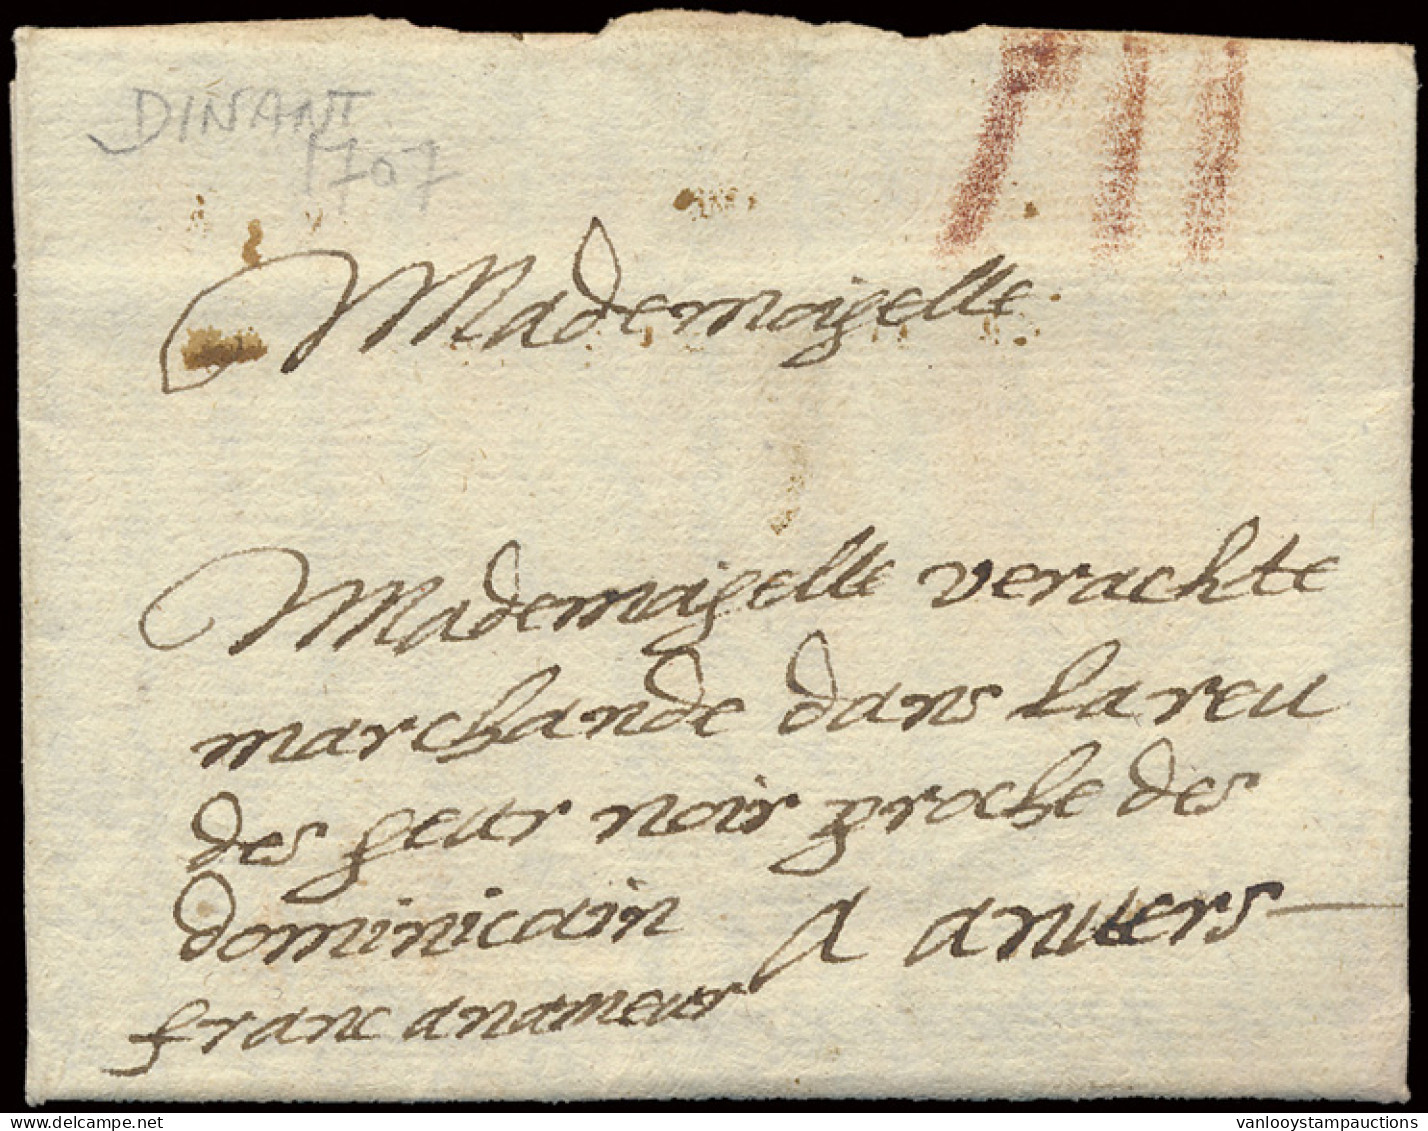 DINANT
1707
Mademoiselle
Mademoiselle verachte
marchande dans la reu
des seur noir proche des
dominicain A anvers
franc a nameur
vanlooystampauctions